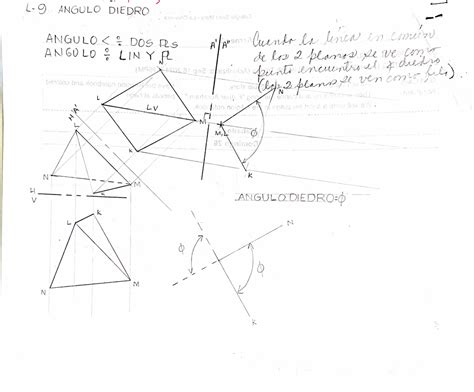 L-9 ANGULO DIEDRO
ANGULO < ÷ DOS
ANGULO ÷ LIN Y
Cuando la linea en común
de los 2 planos se ve como
punto encuentro el ∢ diedro
(los 2 planos se ven como filo).
N
L
LV
M
K
N
M,L
Φ
K
ANGULO DIEDRO=Φ
L
N
M
H
V
L
K
N
M
Φ
N
Φ
K